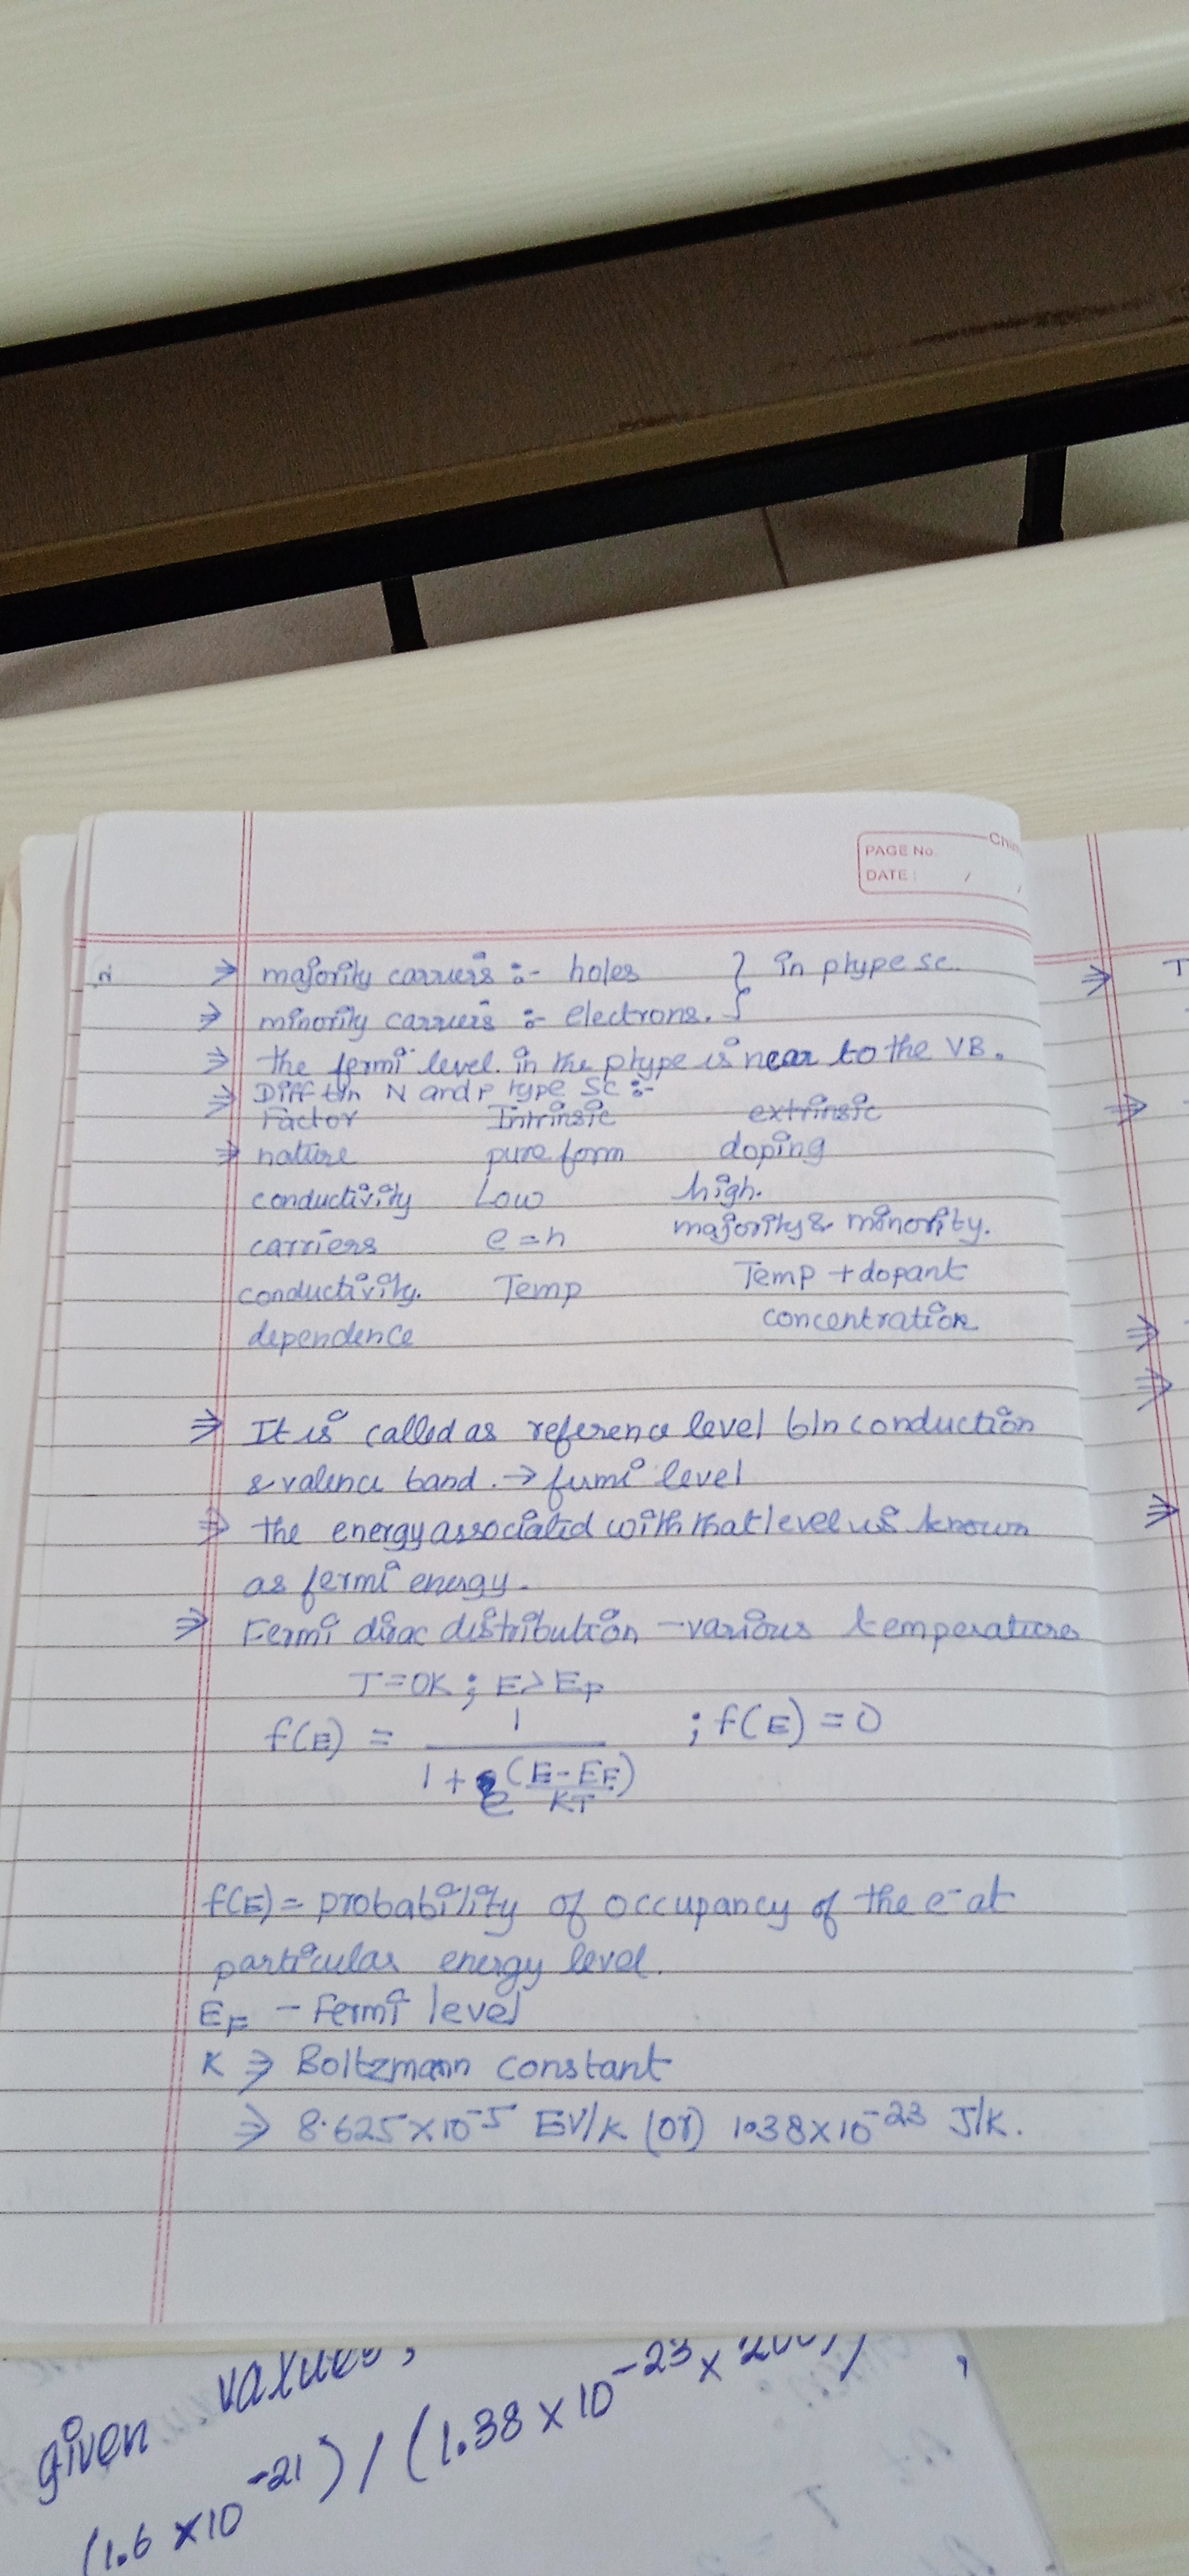 PAGE No.
DATE: / /
⇒ majority carriers :- holes } in ptype sc.
⇒ minority carriers :- electrons.
⇒ the fermi level in the ptype is near to the VB.
⇒ Diff b/n N and P type SC :-
Factor Intrinsic extrinsic
⇒ nature pure form doping
conductivity Low high.
carriers e=h majority & minority.
conductivity Temp Temp + dopant
dependence concentration
⇒ It is called as reference level b/n conduction
& valence band. → fermi level
⇒ the energy associated with that level is known
as fermi energy.
⇒ Fermi dirac distribution - various temperatures
T=0K ; E> EF
f(E) = 1 / 1 + e^((E-EF)/KT) ; f(E) = 0
f(E) = probability of occupancy of the e- at
particular energy level.
EF - Fermi level
K ⇒ Boltzmann constant
⇒ 8.625×10^-5 EV/K (or) 1.38×10^-23 J/K.
given values,
(1.6 ×10^-21) / (1.38 × 10^-23 ×